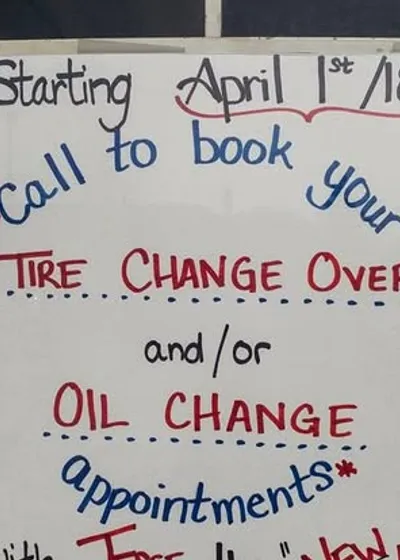 Starting April 1st/18
Call to book your
TIRE CHANGE OVER
and/or
OIL CHANGE
appointments*